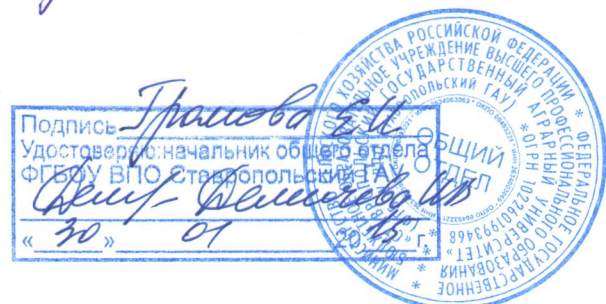 Подпись Громова Е.И.
Удостоверяю: начальник общего отдела
ФГБОУ ВПО Ставропольский ГАУ
« 30 » 01 2015 г.
ОБЩИЙ
ОТДЕЛ
ХОЗЯЙСТВА РОССИЙСКОЙ ФЕДЕРАЦИИ * ФЕДЕРАЛЬНОЕ ГОСУДАРСТВЕННОЕ
УЧРЕЖДЕНИЕ ВЫСШЕГО ПРОФЕССИОНАЛЬНОГО ОБРАЗОВАНИЯ
ГОСУДАРСТВЕННЫЙ АГРАРНЫЙ УНИВЕРСИТЕТ»
* ОГРН 1022601993468